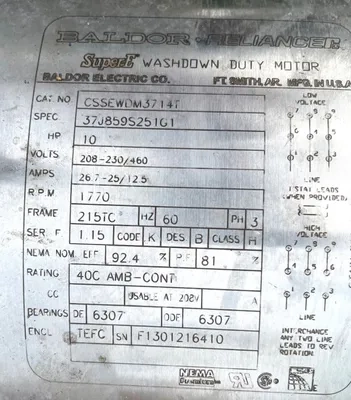 BALDOR · RELIANCER
Super-E WASHDOWN DUTY MOTOR
BALDOR ELECTRIC CO. FT. SMITH, AR. MFG. IN U.S.A.
CAT. NO. CSSEWDM3714T
SPEC. 37J859S251G1
HP 10
VOLTS 208-230/460
AMPS 26.7-25/12.5
R.P.M. 1770
FRAME 215TC HZ 60 PH 3
SER. F. 1.15 CODE K DES B CLASS H
NEMA NOM. EFF. 92.4 % P.F. 81 %
RATING 40C AMB-CONT
CC USABLE AT 208V A
BEARINGS DE 6307 ODE 6307
ENCL TEFC SN F1301216410
LOW
VOLTAGE
LINE
T'STAT LEADS
(WHEN PROVIDED)
HIGH
VOLTAGE
LINE
INTERCHANGE
ANY TWO LINE
LEADS TO REV.
ROTATION.
NEMA
Premium